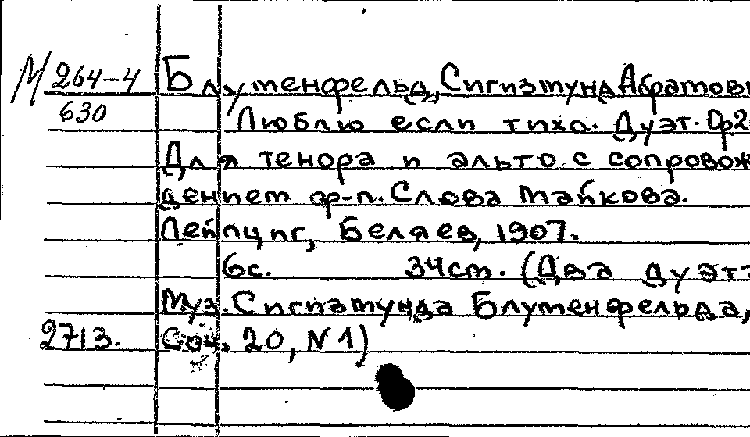 М 264-4 Блуменфельд, Сигизмунд Абрамови
630 Люблю если тихо. Дуэт. Op2
Для тенора и альто с сопровож
дением ф-п. Слова Майкова.
Лейпциг, Беляев, 1907.
6с. 34см. (Два дуэт
Муз. Сигизмунда Блуменфельда,
2713. Соч. 20, N 1)